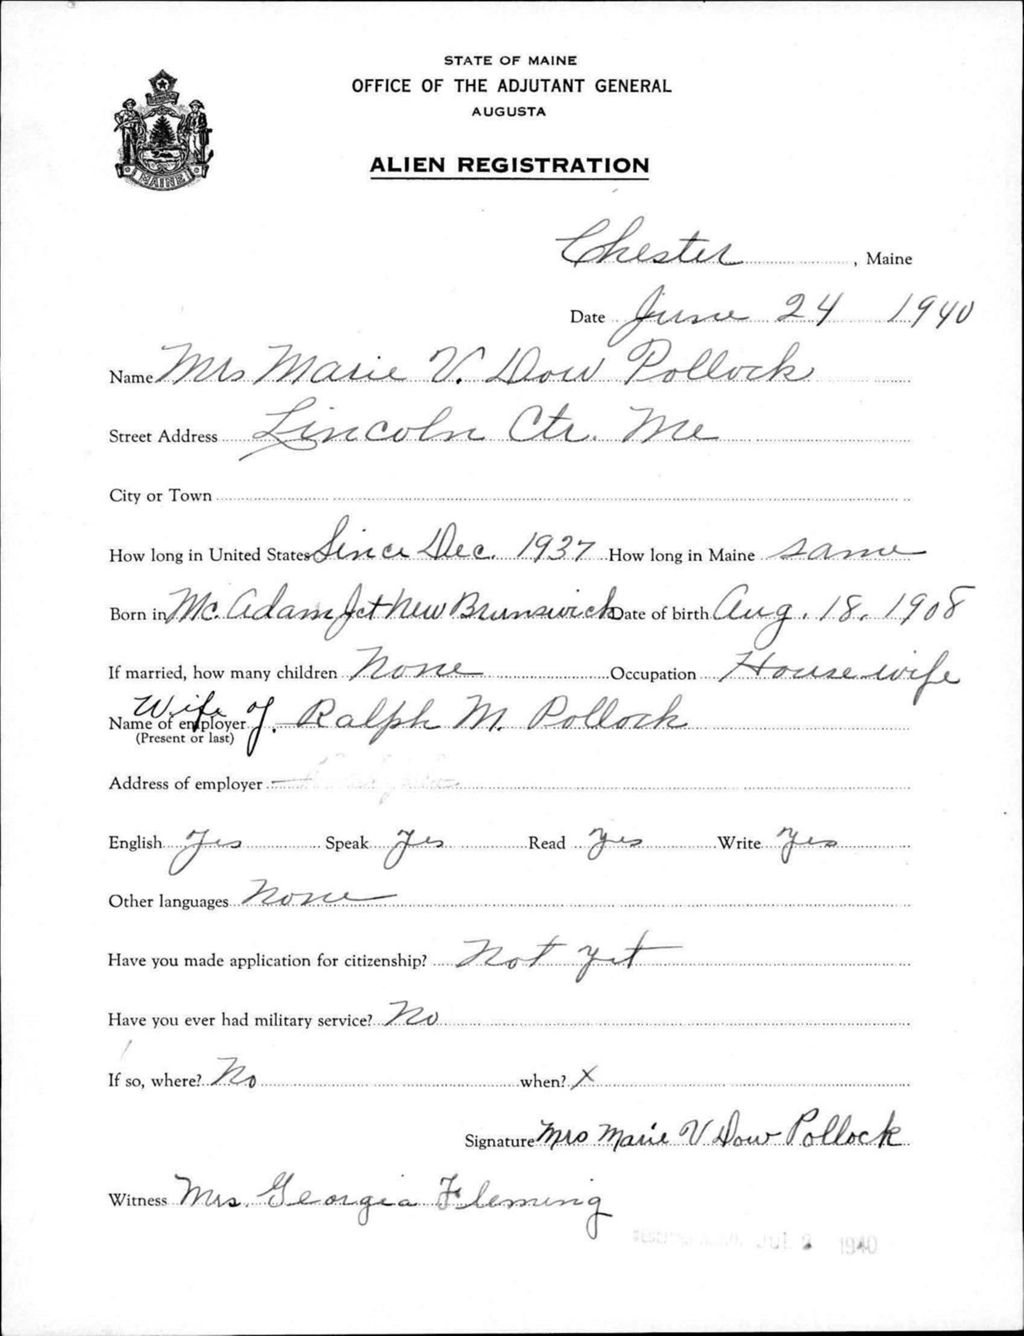 STATE OF MAINE
OFFICE OF THE ADJUTANT GENERAL
AUGUSTA
ALIEN REGISTRATION
MAINE
Chester, Maine
Date June 24 1940
Name Mrs Marie V. Dow Pollock
Street Address Lincoln Ctr. Me
City or Town
How long in United States Since Dec. 1937 How long in Maine same
Born in Mc.Adam Jct New Brunswick Date of birth Aug. 18, 1908
If married, how many children None Occupation Housewife
Wife of
Name of employer Ralph M. Pollock
(Present or last)
Address of employer
English Yes Speak Yes Read Yes Write Yes
Other languages None
Have you made application for citizenship? Not yet
Have you ever had military service? No
If so, where? No when? X
Signature Mrs Marie V Dow Pollock
Witness Mrs. Georgia Fleming
JUL 2 1940